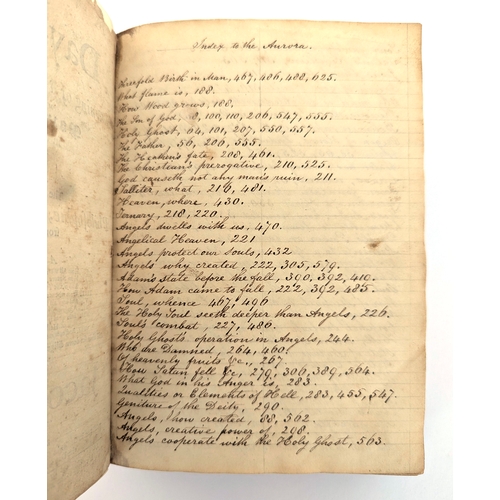 Index to the Aurora.
Threefold Birth in Man, 467, 486, 488, 625.
What flame is, 188.
How Wood grows, 188.
The Son of God, 8, 100, 110, 206, 547, 555.
Holy Ghost, 64, 101, 207, 550, 557.
The Father, 56, 206, 555.
The Heathen's fate, 208, 461.
The Christian's prerogative, 210, 525.
God causeth not any man's ruin, 211.
Salitter, what, 216, 481.
Heaven, where, 430.
Ternary, 218, 220.
Angels dwells with us, 470.
Angelical Heaven, 221
Angels protect our Souls, 432
Angels why created, 222, 305, 579.
Adam's state before the fall, 390, 392, 410.
How Adam came to fall, 222, 392, 485.
Soul, whence 467, 496
The Holy Soul seeth deeper than Angels, 226.
Soul's combat, 227, 486.
Holy Ghosts operation in Angels, 244.
Who are Damned, 264, 460.
Of heavenly fruits &c., 267.
How Satan fell &c, 279, 306, 389, 564.
What God in his Anger is, 283.
Qualities or Elements of Hell, 283, 455, 547.
Geniture of the Deity, 290.
Angels, how created, 88, 562.
Angels, creative power of, 298.
Angels cooperate with the Holy Ghost, 563.